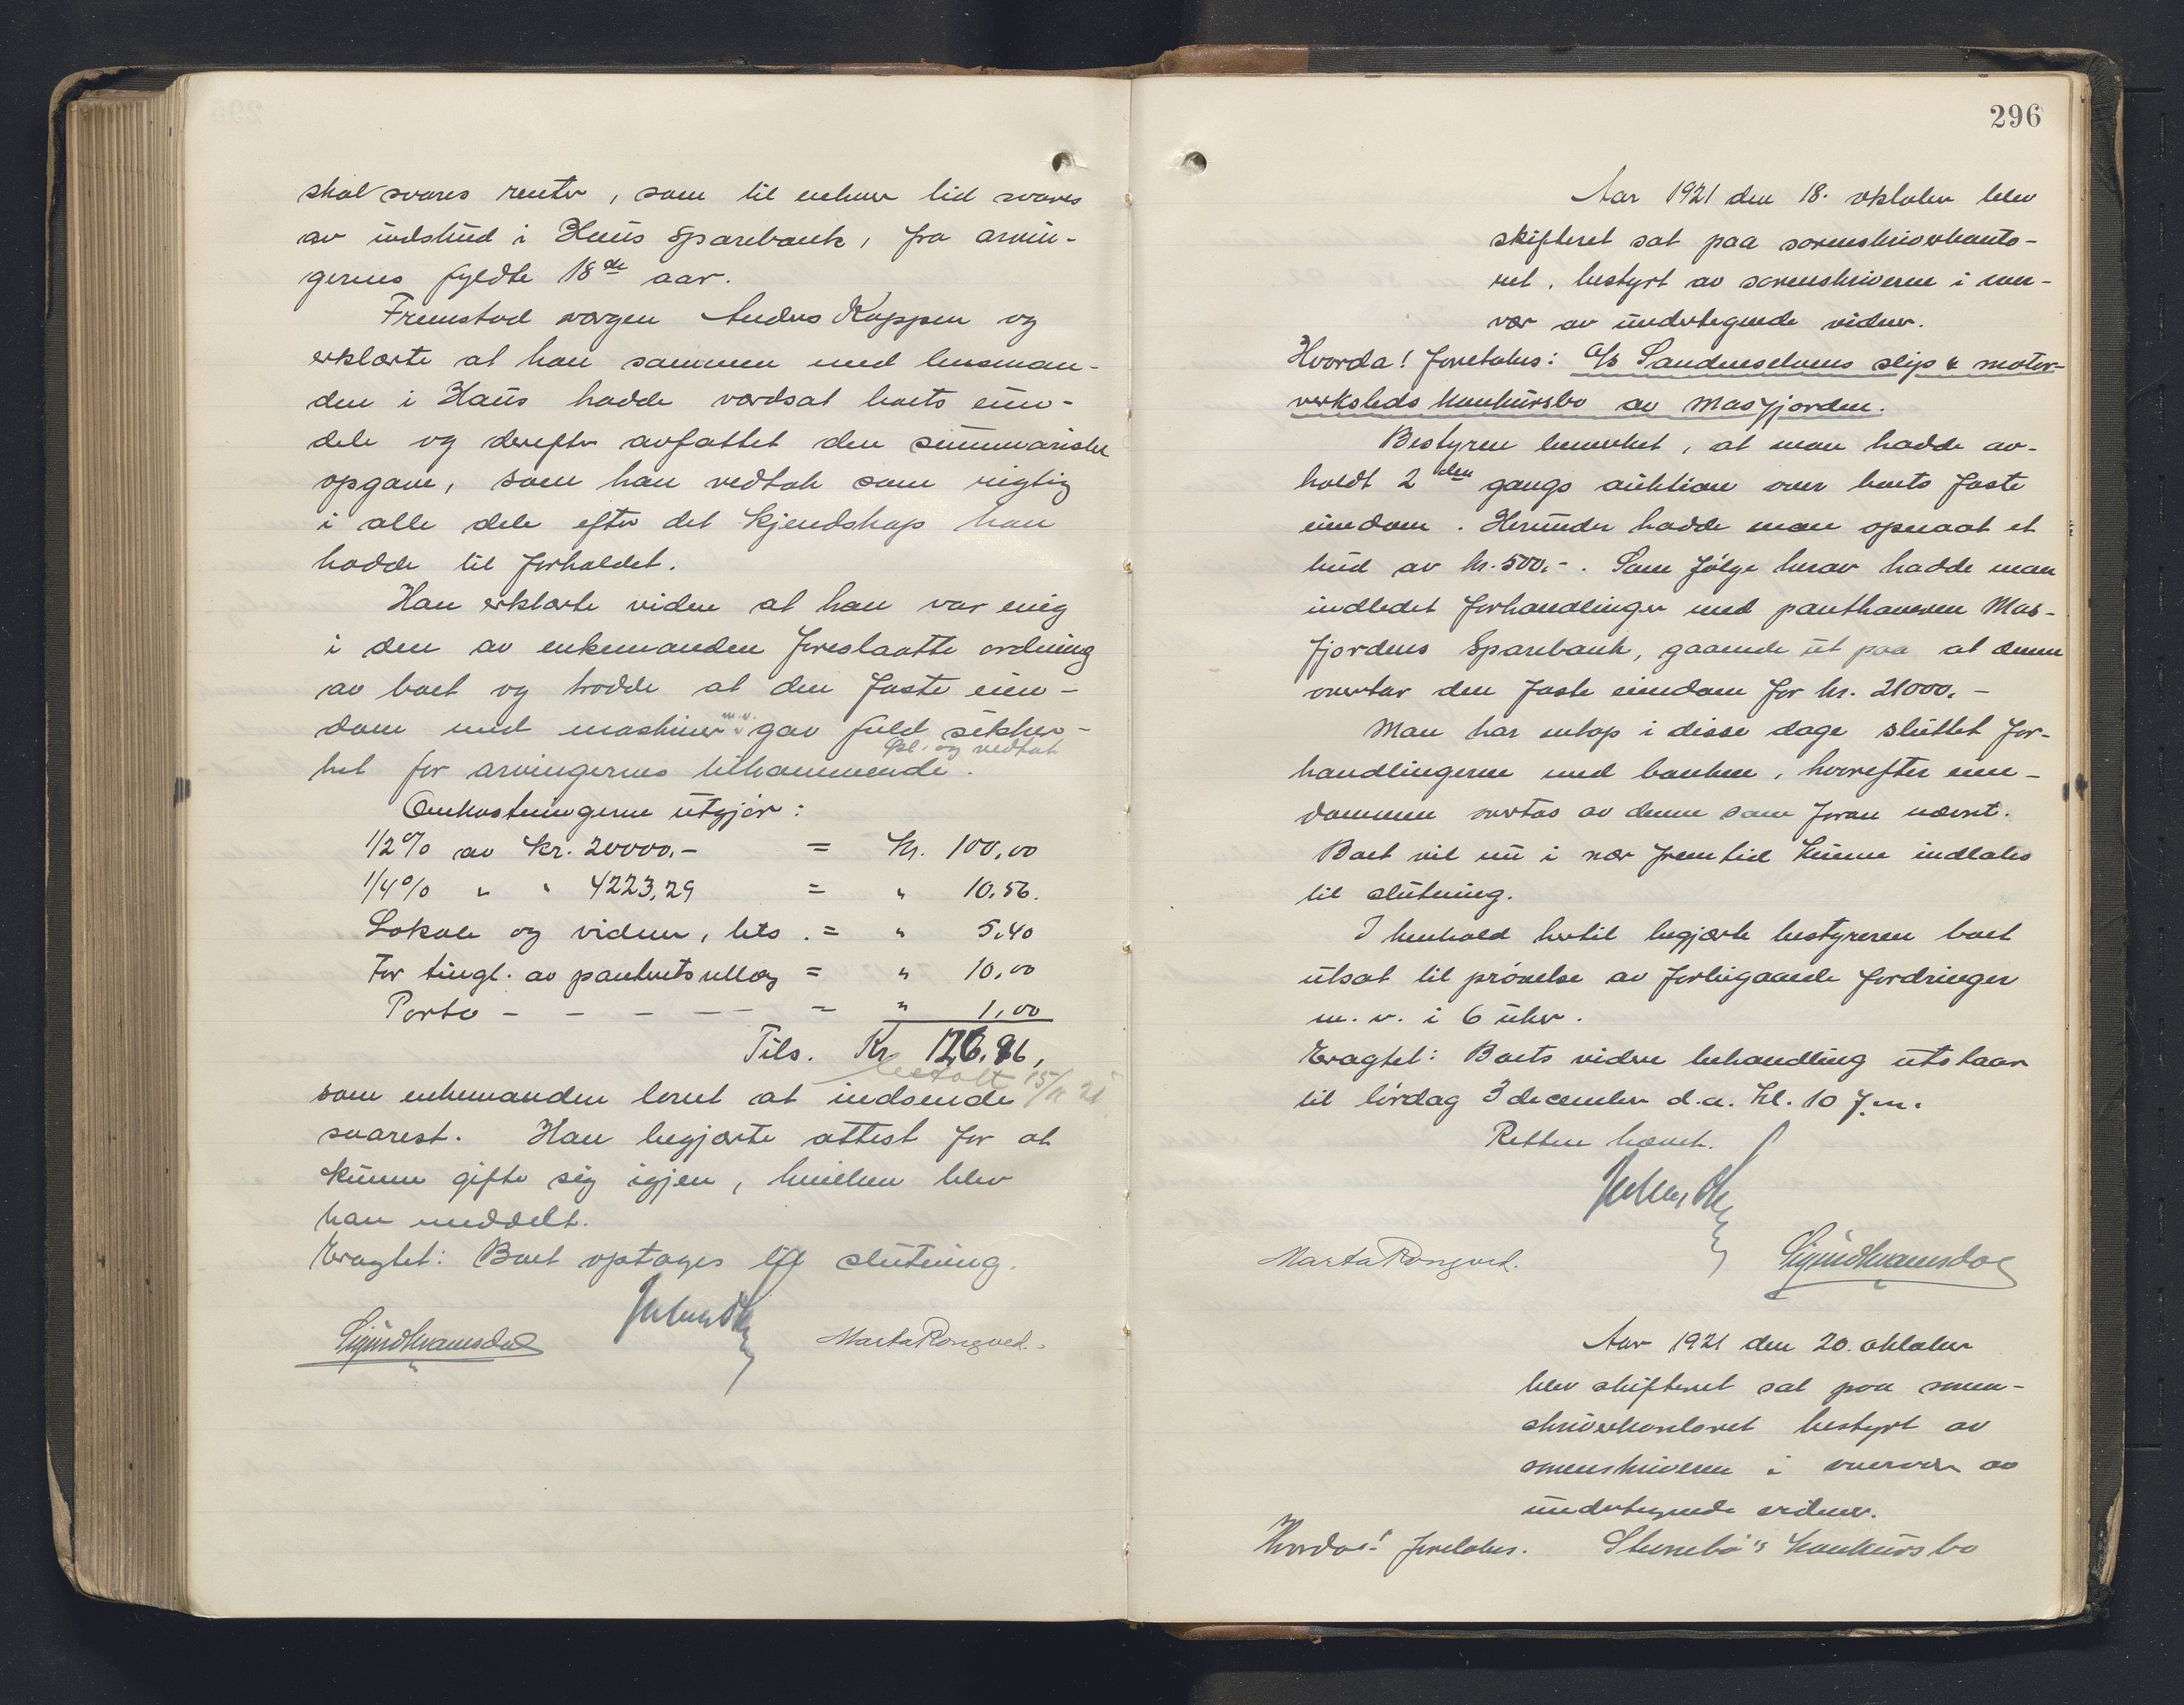 skal svares renter, som til enhver tid svares
av indskud i Haus Sparebank, fra arvin-
gernes fyldte 18de aar.
Fremstod vergen Anders Koppen og
erklærte at han sammen med lensman-
den i Haus hadde værdsat boets eien-
dele og derefter avfattet den summariske
opgave, som han vedtok som rigtig
i alle dele efter det kjendskap han
hadde til forholdet.
Han erklærte videre at han var enig
i den av enkemanden foreslaatte ordning
av boet og trodde at den faste eien-
dom med maskiner m.v. gav fuld sikker-
het for arvingernes tilkommende.
Opl. og vedtat
Omkostningerne utgjør:
1/2% av Kr. 20000.- = Kr. 100,00
1/4% " " 4223,29 = " 10,56.
Lokale og vidner, tils. = " 5,40
For tingl. av panterets utlæg = " 10,00
Porto - - - - - = " 1,00
Tils. Kr 126.96,
betalt 15/11 21
som enkemanden lovet at indsende
snarest. Han begjærte attest for at
kunne gifte sig igjen, hvilken blev
han meddelt.
Eragtet: Boet optages til slutning.
Sigurd Kvamsdal Marta Rongved.
296
Aar 1921 den 18. oktober blev
skifteret sat paa sorenskriverkonto-
ret, bestyrt av sorenskriveren i nær-
vær av undertegnede vidner.
Hvorda! foretokes: A/s Sandneselvens slip & motor-
verksteds konkursbo av Masfjorden.
Bestyreren bemerket, at man hadde av-
holdt 2den gangs auktion over boets faste
eiendom. Herunder hadde man opnaat et
bud av kr. 500.-. Som følge herav hadde man
indledet forhandlinger med panthaveren Mas-
fjordens Sparebank, gaaende ut paa at denne
overtar den faste eiendom for kr. 21000.-
Man har netop i disse dage sluttet for-
handlingerne med banken, hvorefter eien-
dommen overtas av denne som foran nævnt.
Boet vil nu i nær fremtid kunne indlates
til slutning.
I henhold hertil begjærte bestyreren boet
utsat til prøvelse av forbigaaende fordringer
m.v. i 6 uker.
Eragtet: Boets videre behandling utstaar
til lørdag 3 december d.a. kl. 10 f.m.
Retten hævet.
Marta Rongved. Sigurd Kvamsdal
Aar 1921 den 20. oktober
blev skifteret sat paa soren-
skriverkontoret bestyrt av
sorenskriveren i nærvær av
undertegnede vidner.
Hvorda! foretokes. Stenebø's konkursbo